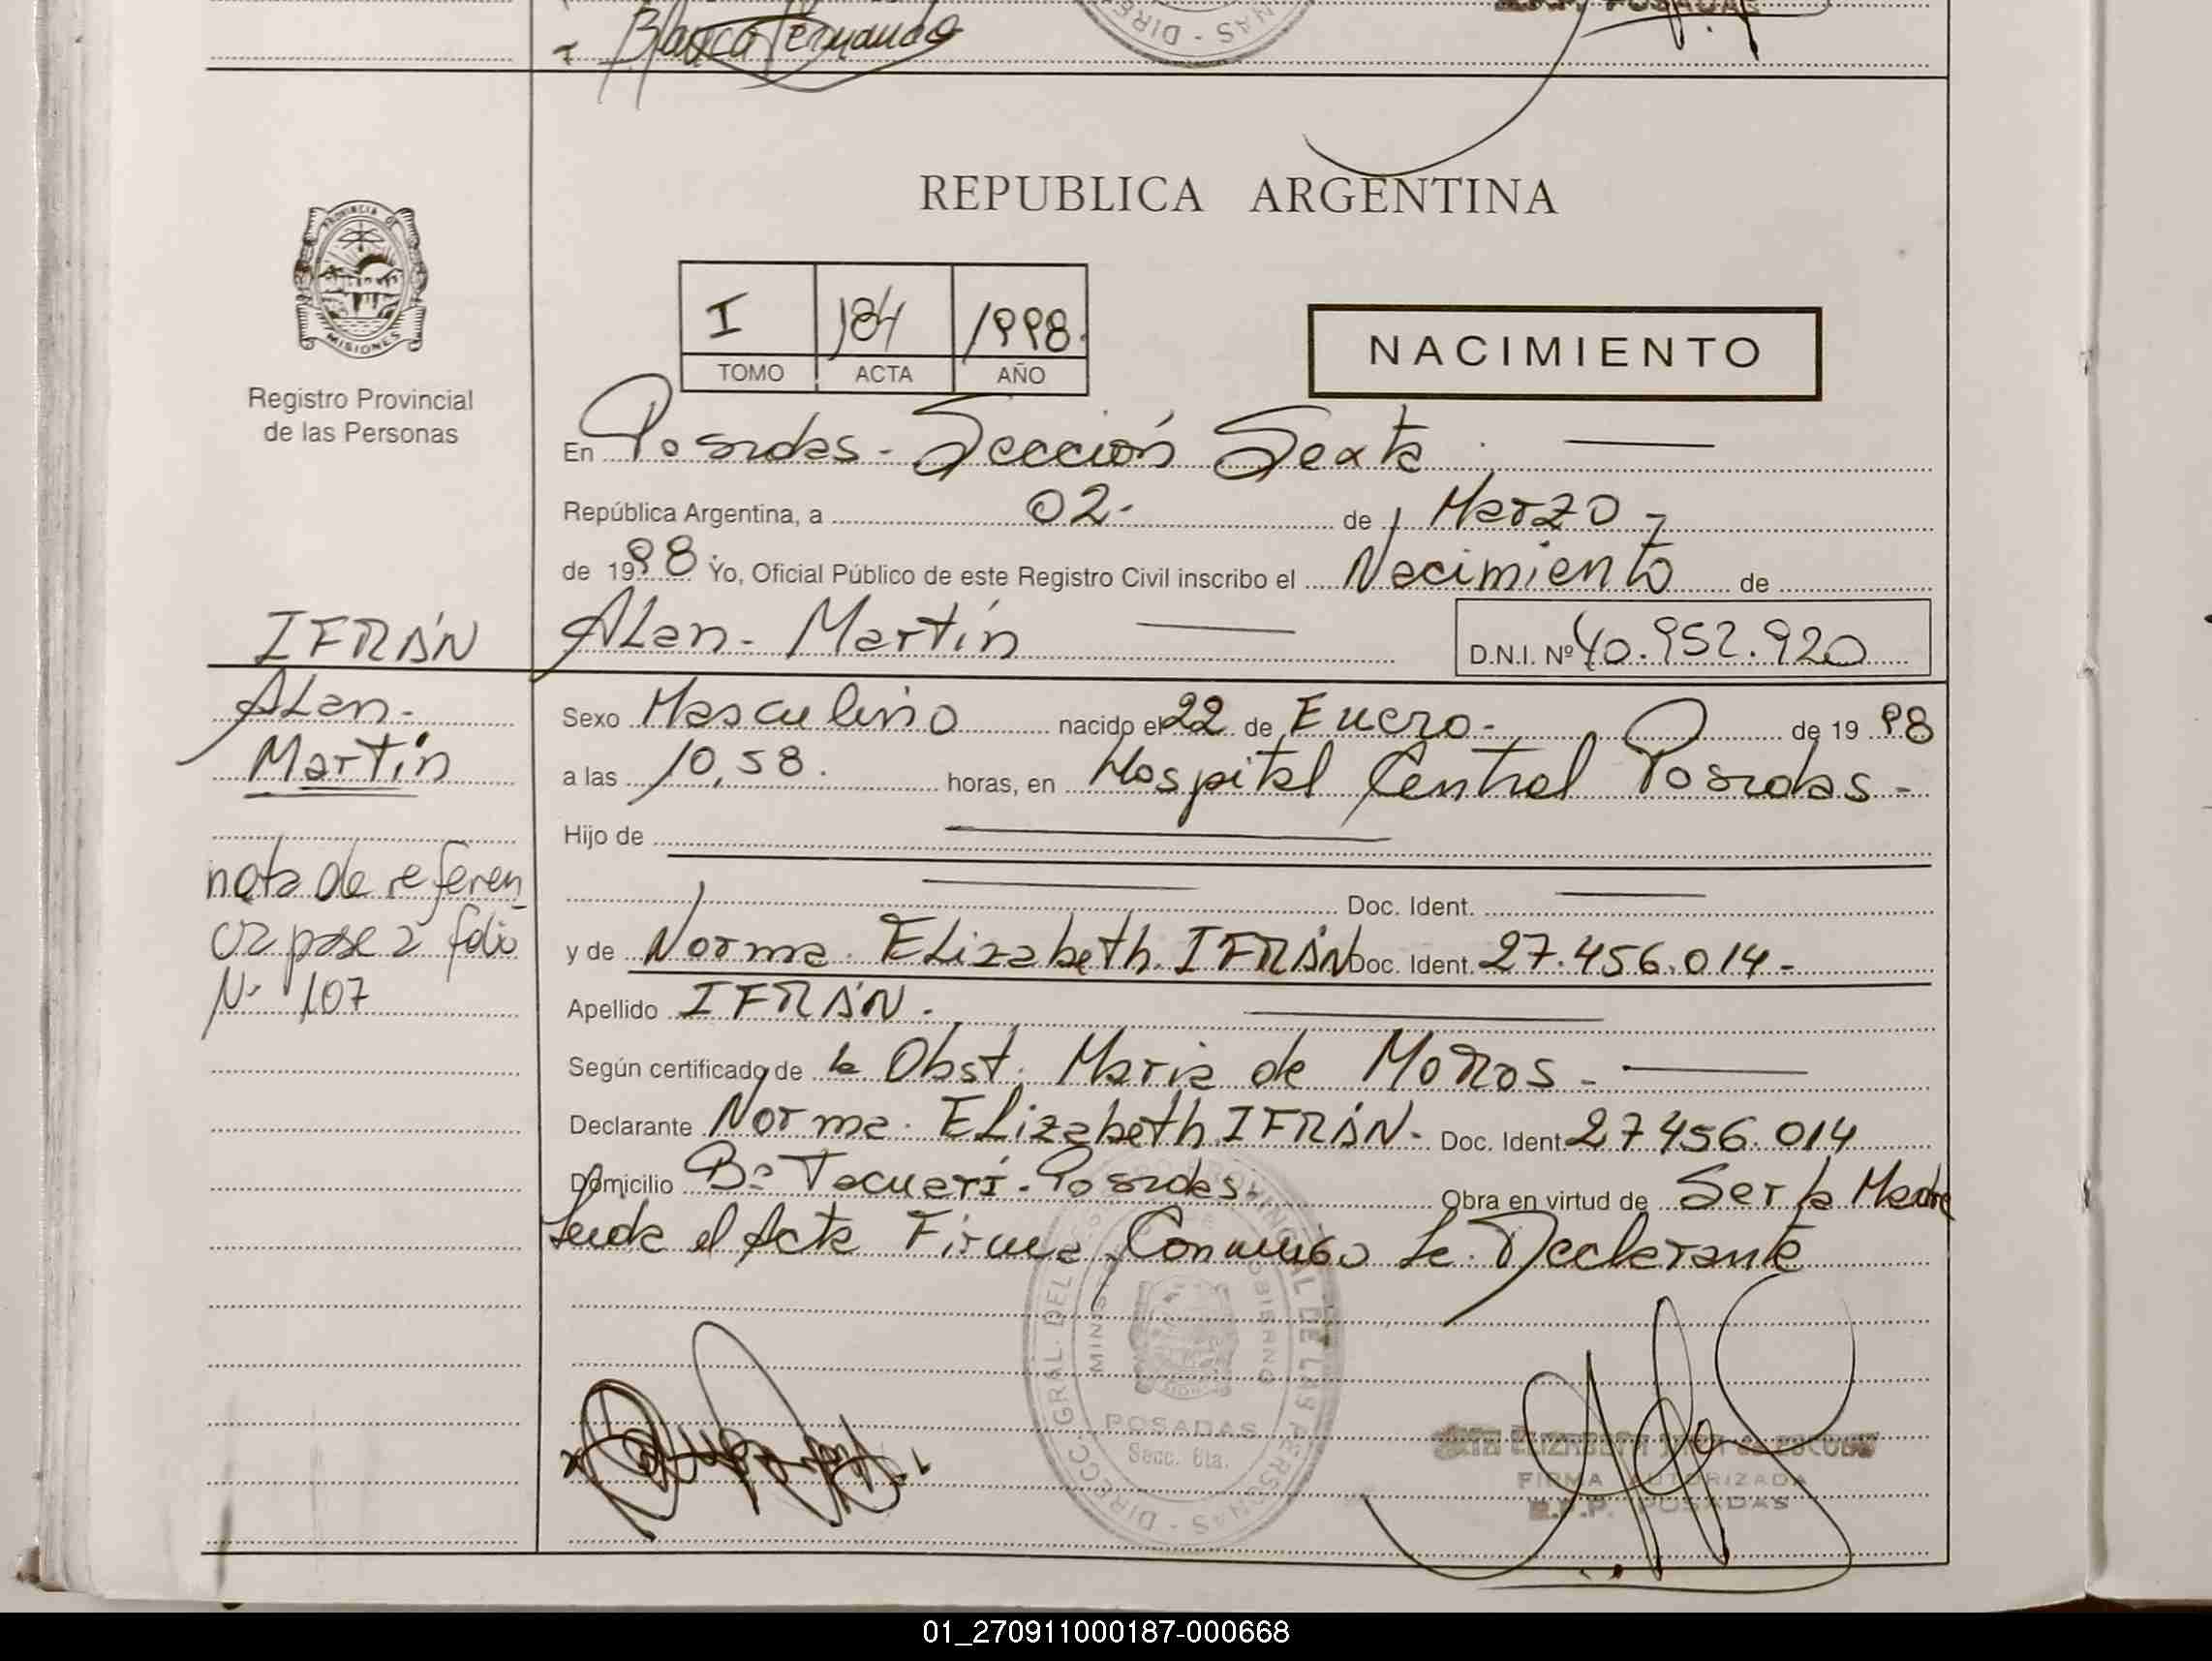 Blanca Fernando
DIREC NAS
R.P.P. POSADAS
REPUBLICA ARGENTINA
PROVINCIA DE
MISIONES
Registro Provincial
de las Personas
I 184 1998.
TOMO ACTA AÑO
NACIMIENTO
En Posadas - Sección Sexta
República Argentina, a 02- de Marzo -
de 1998 Yo, Oficial Público de este Registro Civil inscribo el Nacimiento de
IFRÁN
Alan-
Martín
Alan - Martín D.N.I. Nº 40.952.920
Sexo Masculino nacido el 22 de Enero - de 19 98
a las 10,58. horas, en Hospital Central Posadas -
Hijo de
Doc. Ident.
nota de referen
cia pase a folio
Nº 107
y de Norma Elizabeth IFRÁN Doc. Ident. 27.456.014-
Apellido IFRÁN.
Según certificado de la Obst. Maria de Morros -
Declarante Norma Elizabeth IFRÁN - Doc. Ident. 27456.014
Domicilio Bº Tacuarí - Posadas. Obra en virtud de Ser la Madre
Leida el Acta Firma Conmigo La Declarante
DIRECC. GRAL. DEL REGISTRO PROVINCIAL DE LAS PERSONAS
POSADAS
Secc. 6ta.
ELIZABETH
FIRMA AUTORIZADA
R.P.P. POSADAS
01_270911000187-000668